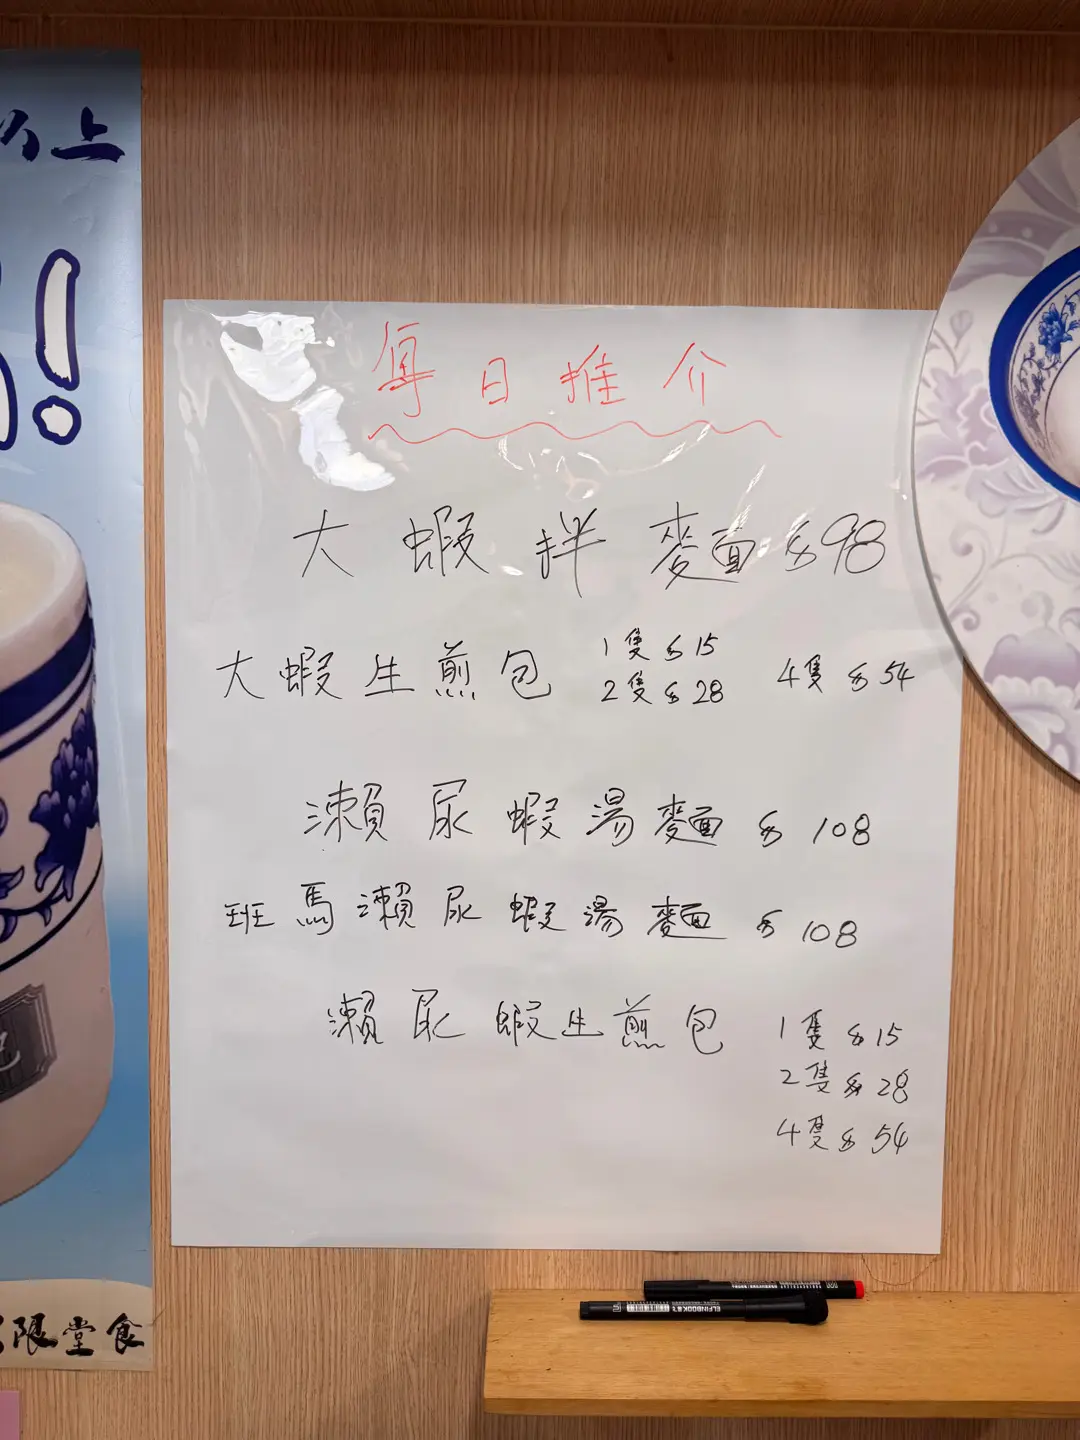 上
!
每日推介
大蝦拌麵 $98
大蝦生煎包 1隻 $15 4隻 $54
2隻 $28
瀨尿蝦湯麵 $108
班馬瀨尿蝦湯麵 $108
瀨尿蝦生煎包 1隻 $15
2隻 $28
4隻 $54
限堂食